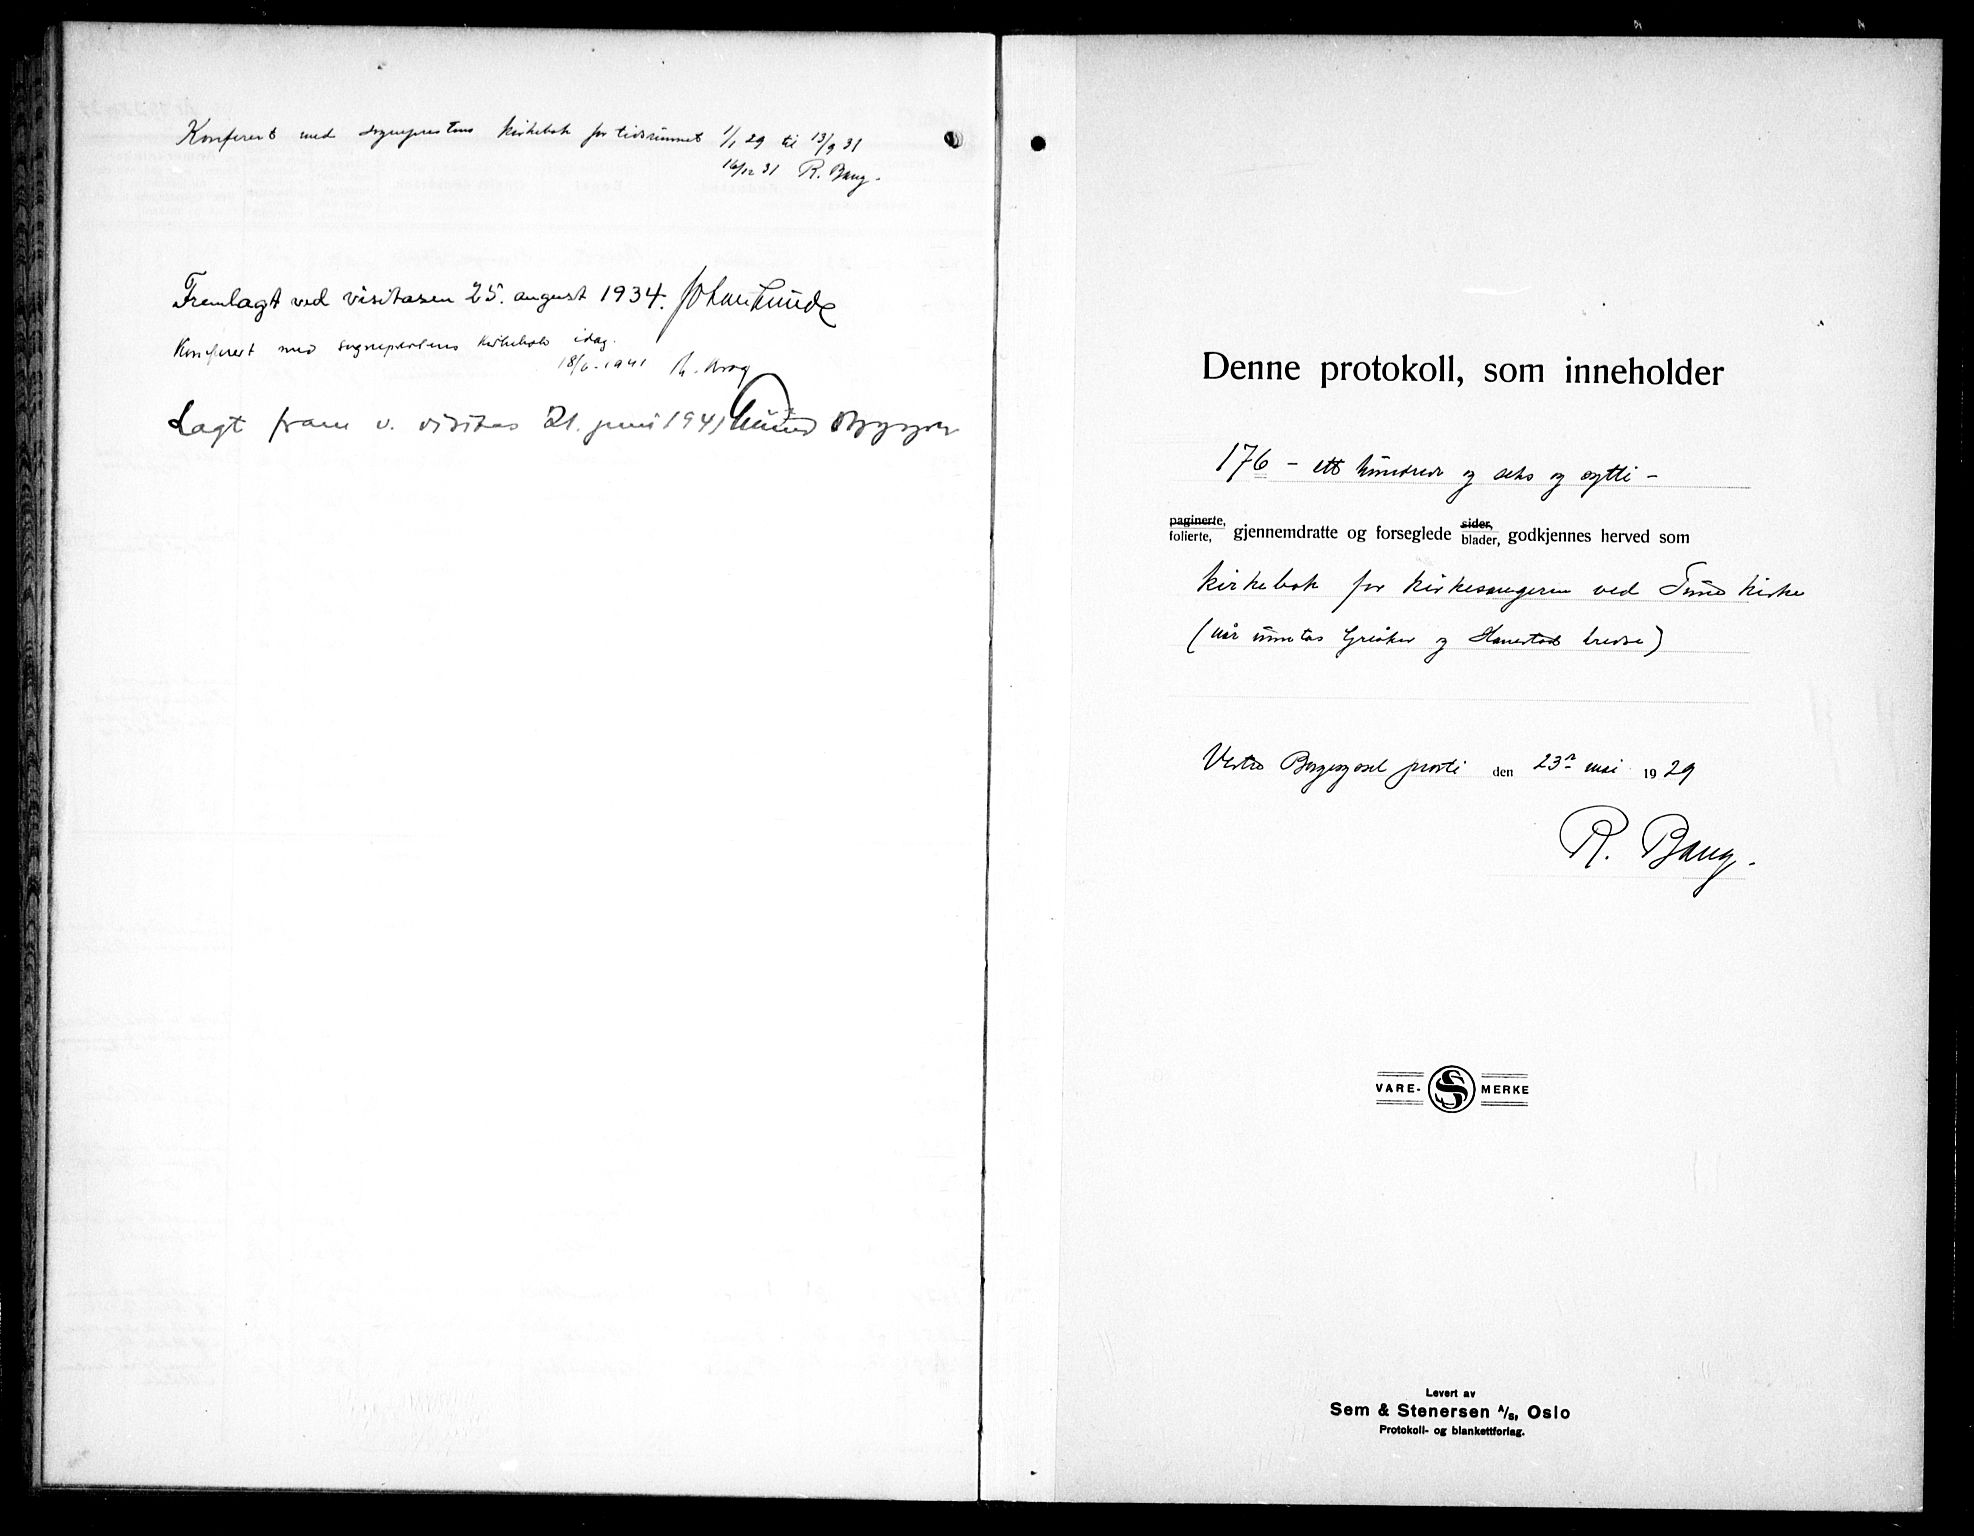 Konferert med sogneprestens kirkebok for tidsrummet 1/1 29 til 13/9 31
16/12 31 R. Bang.
Fremlagt ved visitasen 25. august 1934. Johan Lunde
Konferert med sogneprestens kirkebok idag.
18/6-1941
Lagt fram v. visitas 21. juni 1941
Denne protokoll, som inneholder
176 - ett hundrede og seks og sytti -
paginerte,
folierte, gjennemdratte og forseglede sider,
blader, godkjennes herved som
kirkebok for kirkesangeren ved Tune kirke
(når unntas Greåker og Hanestad kredse)
Vestre Borgesyssel prosti den 23n mai 1929
R. Bang.
VARE- S MERKE
Levert av
Sem & Stenersen A/S, Oslo
Protokoll- og blankettforlag.